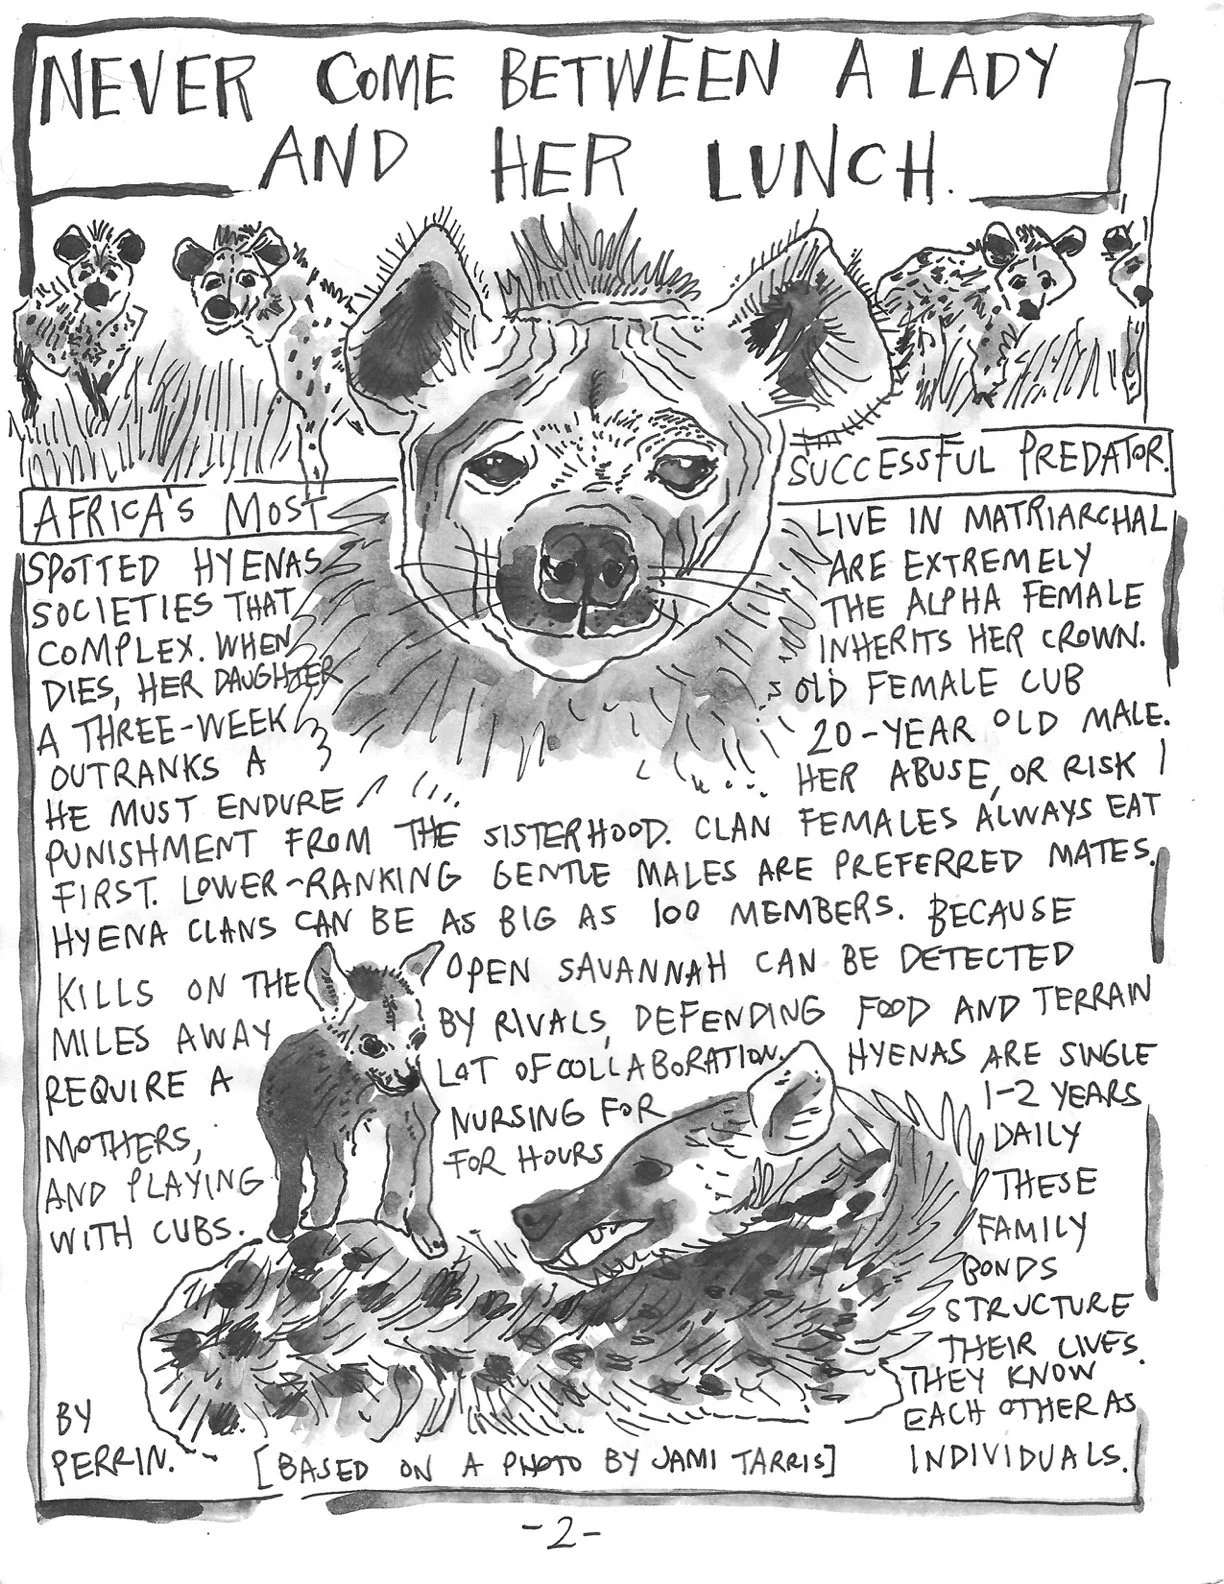 NEVER COME BETWEEN A LADY
AND HER LUNCH.
AFRICA'S MOST SUCCESSFUL PREDATOR.
SPOTTED HYENAS LIVE IN MATRIARCHAL
SOCIETIES THAT ARE EXTREMELY
COMPLEX. WHEN THE ALPHA FEMALE
DIES, HER DAUGHTER INHERITS HER CROWN.
A THREE-WEEK OLD FEMALE CUB
OUTRANKS A 20-YEAR OLD MALE.
HE MUST ENDURE HER ABUSE, OR RISK
PUNISHMENT FROM THE SISTERHOOD. CLAN FEMALES ALWAYS EAT
FIRST. LOWER-RANKING GENTLE MALES ARE PREFERRED MATES.
HYENA CLANS CAN BE AS BIG AS 100 MEMBERS. BECAUSE
KILLS ON THE OPEN SAVANNAH CAN BE DETECTED
MILES AWAY BY RIVALS, DEFENDING FOOD AND TERRAIN
REQUIRE A LOT OF COLLABORATION. HYENAS ARE SINGLE
MOTHERS, NURSING FOR 1-2 YEARS
AND PLAYING FOR HOURS DAILY
WITH CUBS. THESE
FAMILY
BONDS
STRUCTURE
THEIR LIVES.
THEY KNOW
EACH OTHER AS
INDIVIDUALS.
BY
PERRIN.
[BASED ON A PHOTO BY JAMI TARRIS]
-2-